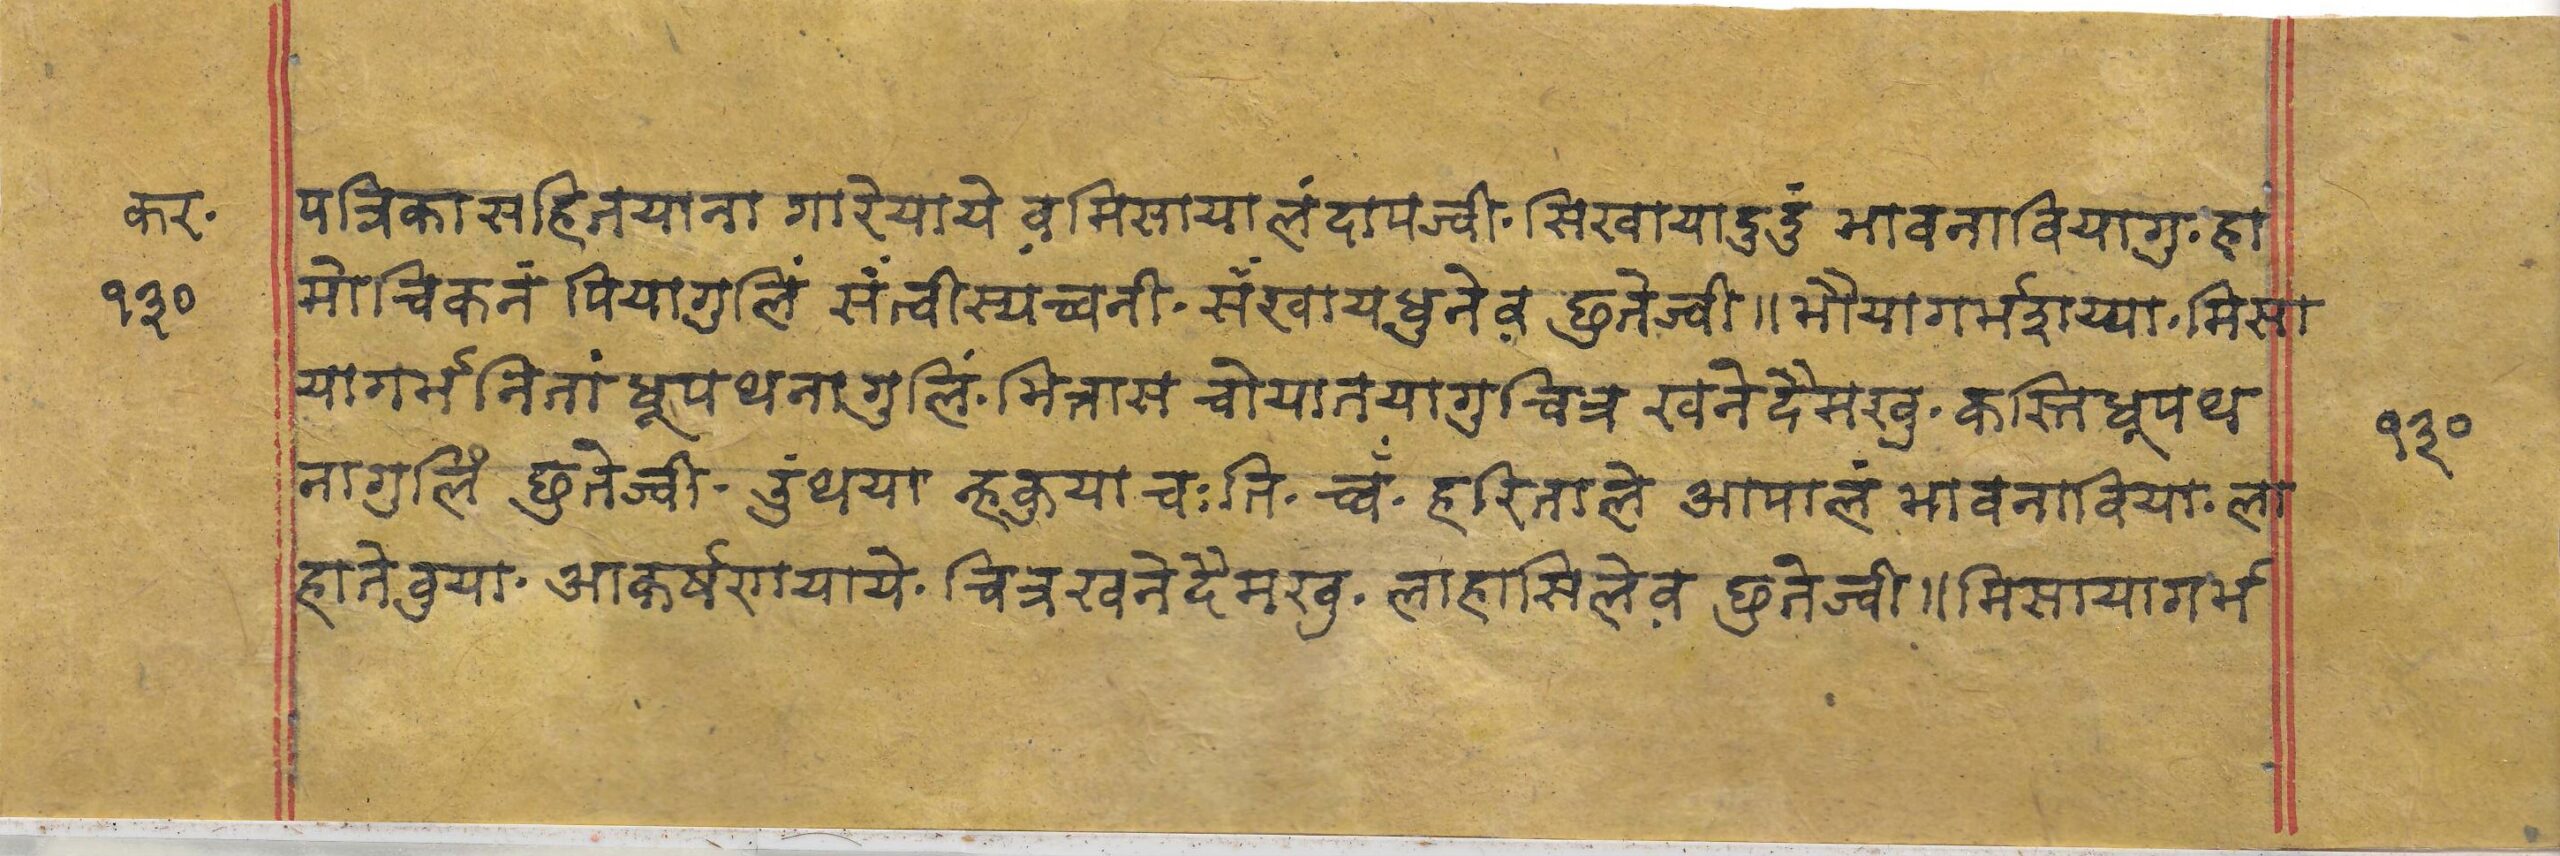 कर॰
१३०
पत्रिका सहितयाना गारेयाये व़मिसाया लंदापज्वी॰ सिखायादुदुं भावनावियागु॰ हा
मोचिकनं पियागुलिं संत्वीस्यच्वनी॰ सँखायधुनेव़ छुतेज्वी॥ भौयागर्भशय्या॰ मिसा
यागर्भनितां धूपथनागुलिं॰ भित्तास चोयातयागुचित्र खनेदैमखु॰ कस्तिधूपथ
नागुलिँ छुतेज्वी॰ दुंथया न्हकुयाचःति॰ च्वँ॰ हरिताले आपालं भावनाविया॰ ला
हातेवुया॰ आकर्षणयाये॰ चित्रखनेदैमखु॰ लाहासिलेव़ छुतेज्वी॥ मिसायागर्भ
१३०